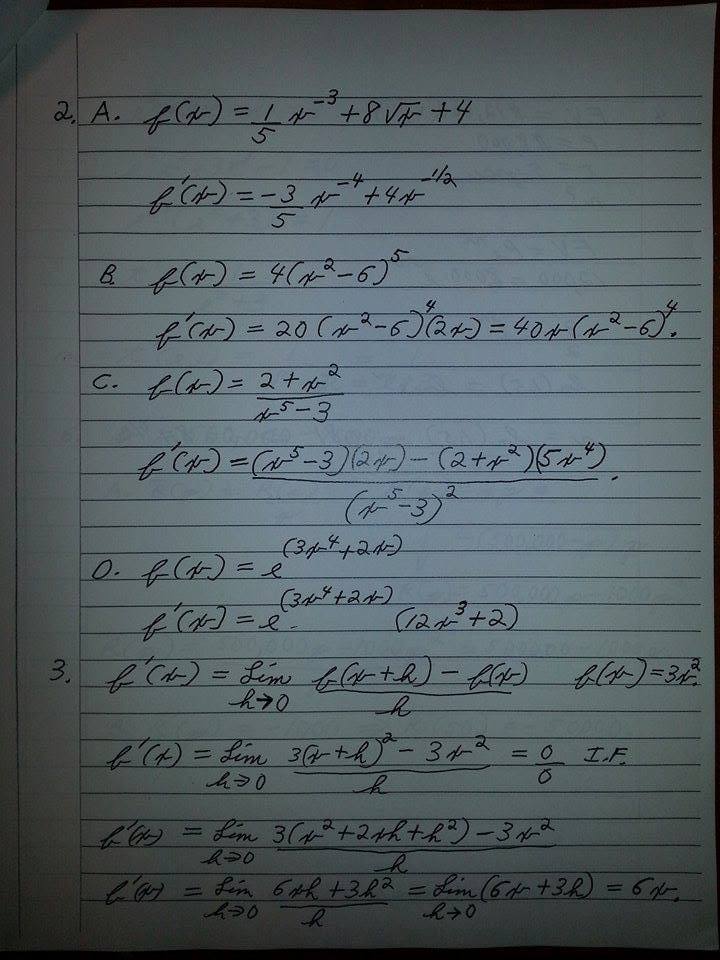 2. A. f(x) = 1/5 x^-3 + 8√x + 4
f'(x) = -3/5 x^-4 + 4x^-1/2
B. f(x) = 4(x^2 - 6)^5
f'(x) = 20(x^2 - 6)^4(2x) = 40x(x^2 - 6)^4.
C. f(x) = (2 + x^2)/(x^5 - 3)
f'(x) = ((x^5 - 3)(2x) - (2 + x^2)(5x^4))/(x^5 - 3)^2.
D. f(x) = e^(3x^4 + 2x)
f'(x) = e^(3x^4 + 2x) (12x^3 + 2)
3. f'(x) = Lim h→0 (f(x + h) - f(x))/h f(x) = 3x^2.
f'(x) = Lim h→0 (3(x + h)^2 - 3x^2)/h = 0/0 I.F.
f'(x) = Lim h→0 (3(x^2 + 2xh + h^2) - 3x^2)/h
f'(x) = Lim h→0 (6xh + 3h^2)/h = Lim h→0 (6x + 3h) = 6x.